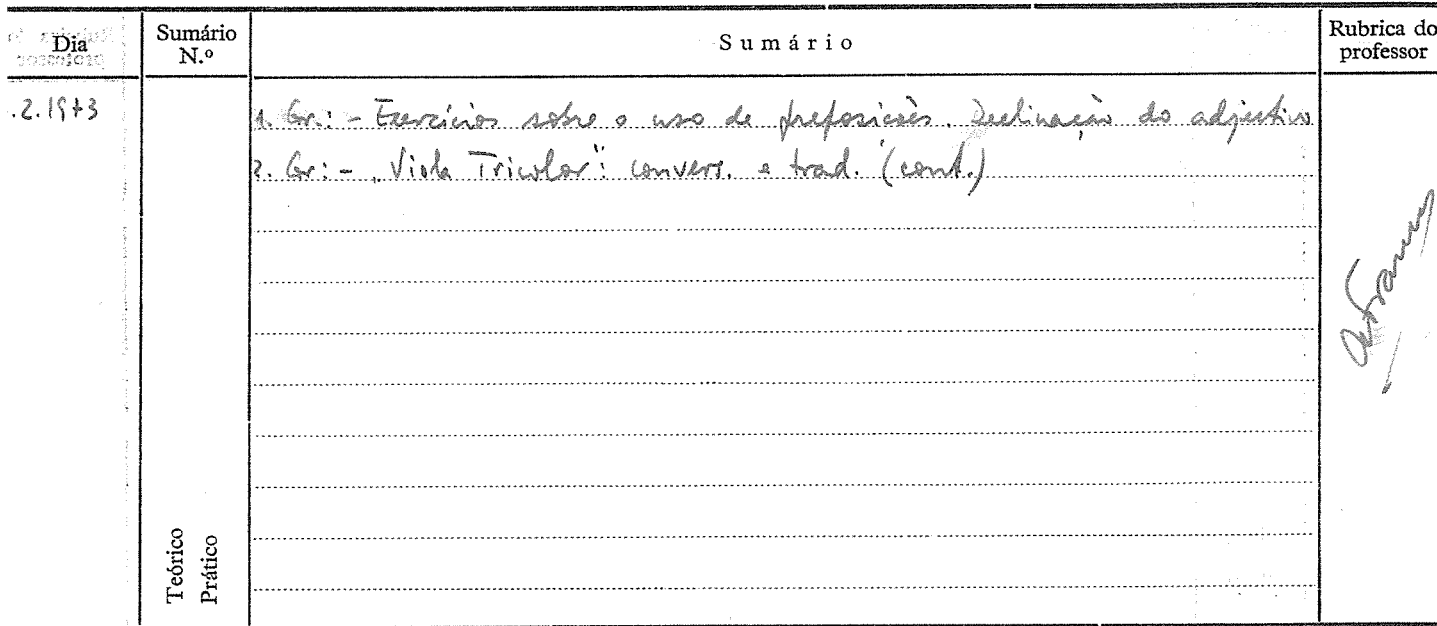 Dia
Sumário N.º
Sumário
Rubrica do professor
.2.1973
1. Gr.: - Exercícios sobre o uso de preposições. Declinação do adjectivo
2. Gr: - „Viola Tricolor": convers. e trad. (cont.)
Teórico
Prático